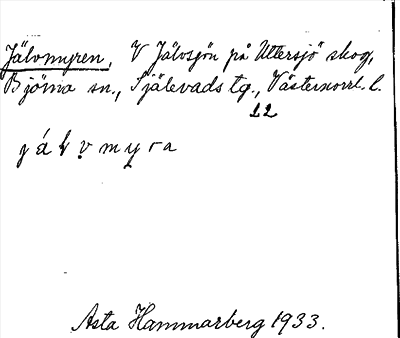 Jälvmyren, V Jälvsjön på Uttersjö skog,
Björna sn., Själevads tg., Västernorrl. l.
12
jálvmyra
Asta Hammarberg 1933.